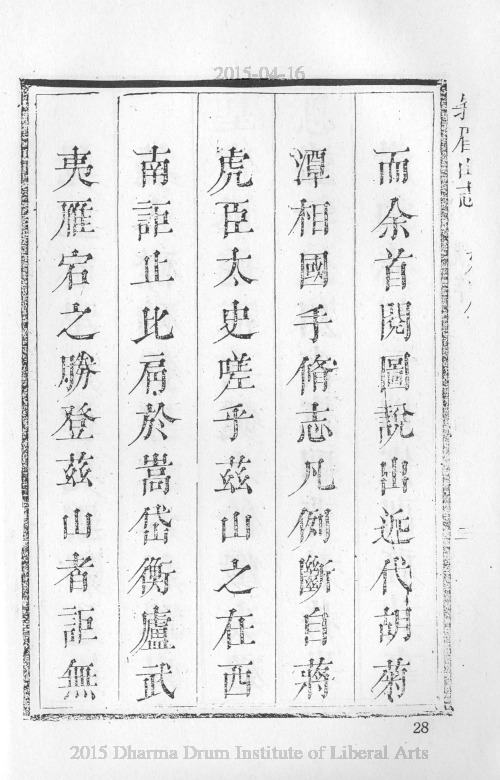 2015-04-16
峩眉山志
而余首閱圖說出近代胡菊
潭相國手脩志凡例斷自蔣
虎臣太史嗟乎茲山之在西
南詎止比肩於嵩岱衡廬武
夷雁宕之勝登茲山者詎無
28
2015 Dharma Drum Institute of Liberal Arts